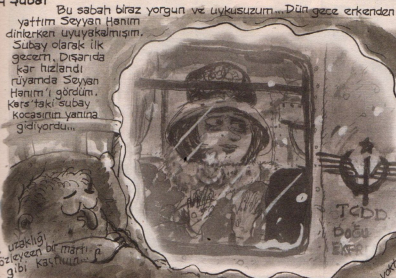 4 Şubat
Bu sabah biraz yorgun ve uykusuzum... Dün gece erkenden
yattım Seyyan Hanım
dinlerken uyuyakalmışım.
Subay olarak ilk
gecem. Dışarıda
kar hızlandı
rüyamda Seyyan
Hanım'ı gördüm.
Kars'taki subay
kocasının yanına
gidiyordu...
TCDD.
DOĞU
uzaklığı
özleyecen bir martı
gibi